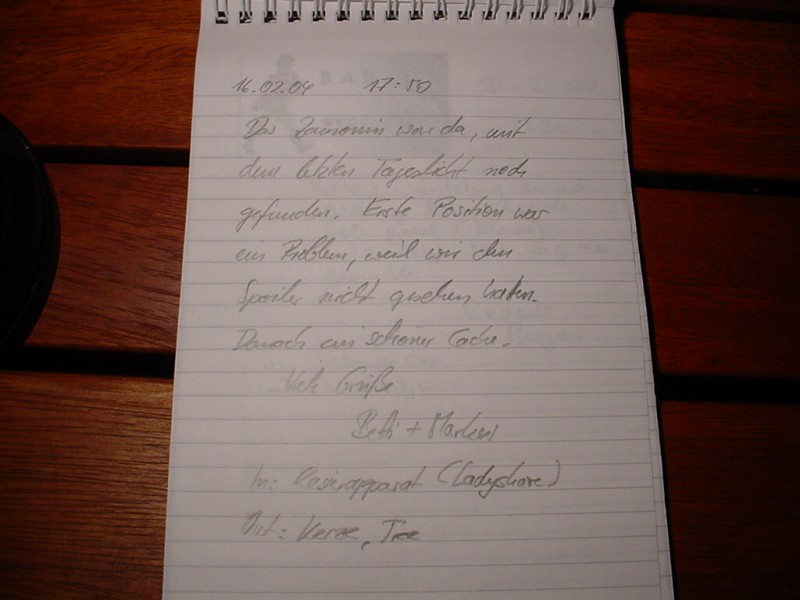 16.02.04 17:50
Das war da, mit
dem letzten Tageslicht noch
gefunden. Erste Position war
ein Problem, weil wir den
Spoiler nicht gesehen hatten.
Danach ein schöner Cache.
Viele Grüße
Betti + Markus
In: Rasierapparat (Ladyshave)
Out: Kerze, Tee